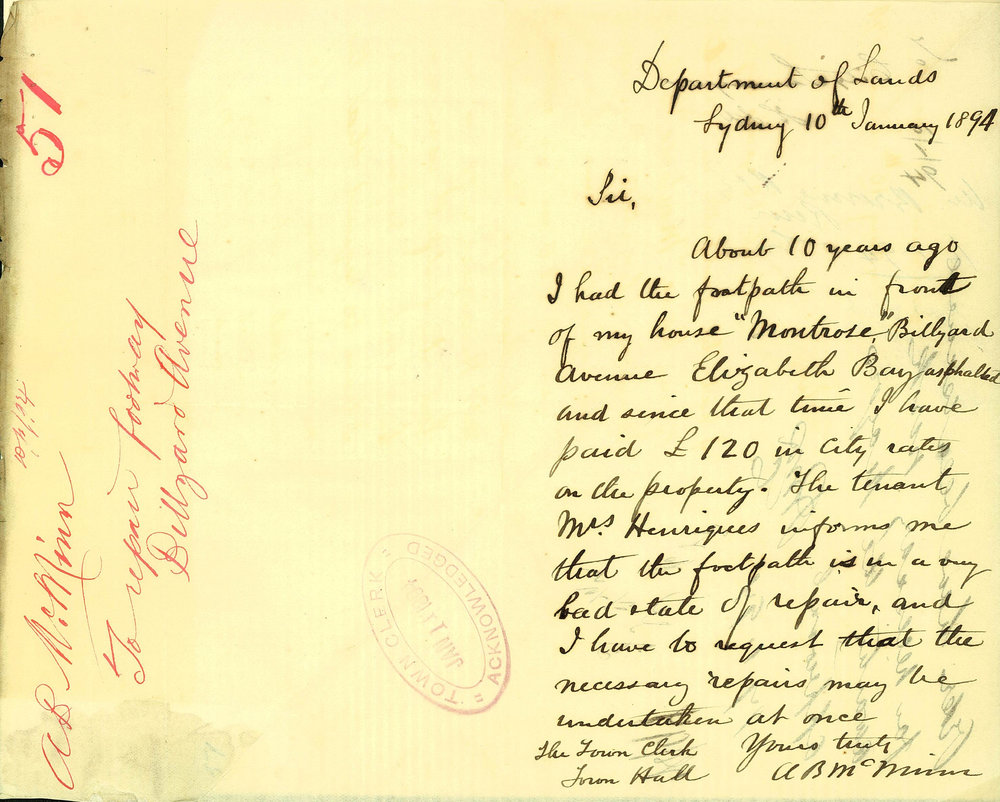 51
A B McMinn
To repair footway
Billyard Avenue
"TOWN CLERK"
JAN 11 1894
"ACKNOWLEDGED"
Department of Lands
Sydney 10th January 1894
Sir,
About 10 years ago
I had the footpath in front
of my house "Montrose", Billyard
Avenue Elizabeth Bay asphalted
and since that time I have
paid £120 in City rates
on the property. The tenant
Mrs Henriques informs me
that the footpath is in a very
bad state of repair, and
I have to request that the
necessary repairs may be
undertaken at once
Yours truly
A B McMinn
The Town Clerk
Town Hall